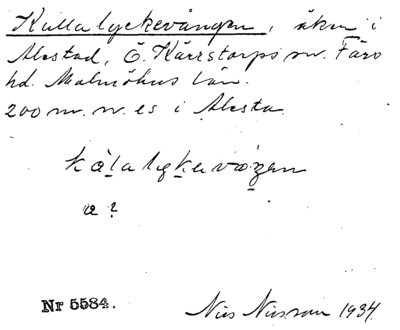 Kullalyckevången, åker i
Alestad, Ö. Kärrstorps sn. Färs
hd. Malmöhus län.
200 m. n. es i Alesta.
kȧlalykevȧŋen
a ?
Nr 5584.
Nils Nilsson 1934.